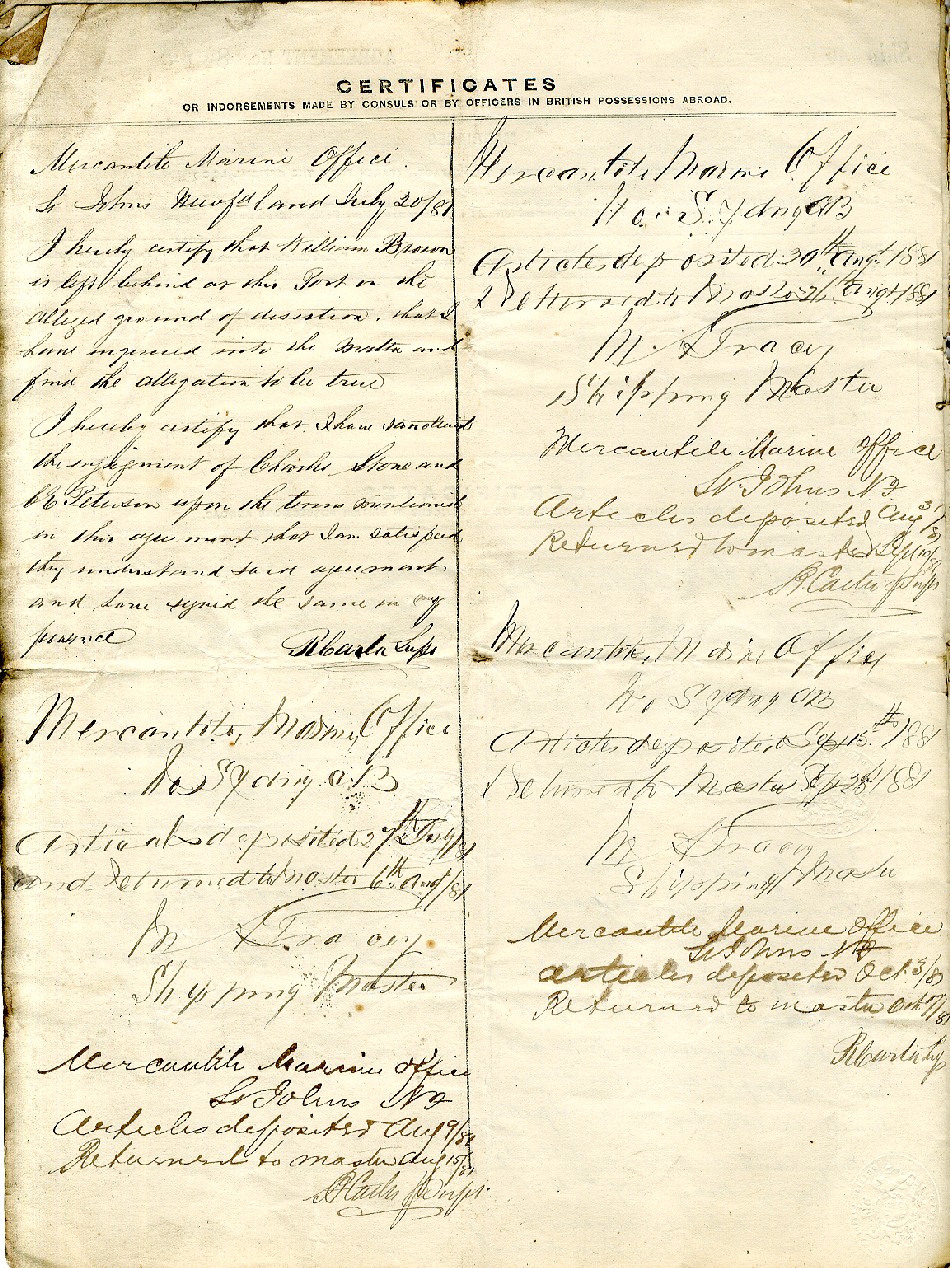 CERTIFICATES
OR INDORSEMENTS MADE BY CONSULS OR BY OFFICERS IN BRITISH POSSESSIONS ABROAD.
Mercantile Marine Office.
St Johns Newfdland July 20/81
I hereby certify that William Brown
is left behind at this Port on the
alledged ground of desertion, that I
have inquired into the matter and
find the allegation to be true
I hereby certify that I have sanctioned
the engagement of Charles Stone and
Peterson upon the terms mentioned
in this agreement that I am satisfied
they understand said agreement
and have signed the same in my
presence
R Carter Supt
Mercantile Marine Office
No Sydny CB
Articals deposited 27th July/81
and Returned to Master 6th Augt/81
M Tracey
Shipping Master
Mercantile Marine Office
St Johns NF
Articles deposited Aug 9/81
Returned to master Aug 15/81
R Carter Supt
Mercantile Marine Office
No. Sydny CB
Articles deposited 20th Augt 1881
& Returned to Master 26th Augt 1881
M Tracey
Shipping Master
Mercantile Marine Office
St Johns NF
Articles deposited Aug 31/81
Returned to master
R Carter Supt
Mercantile Marine Office
No Sydny CB
Articles deposited Sep 15th 1881
& Returned to Master Sep 1881
M Tracey
Shipping Master
Mercantile Marine Office
St Johns NF
articles deposited Oct 3/81
Returned to master Oct 7/81
R Carter Sup